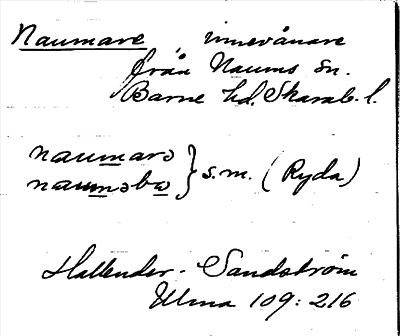 Naumare, innevånare
från Naums sn.
Barne hd. Skarab. l.
naumarə } s.m. (Ryda)
nauməbɷ
Hallender - Sandström
Ulma 109:216